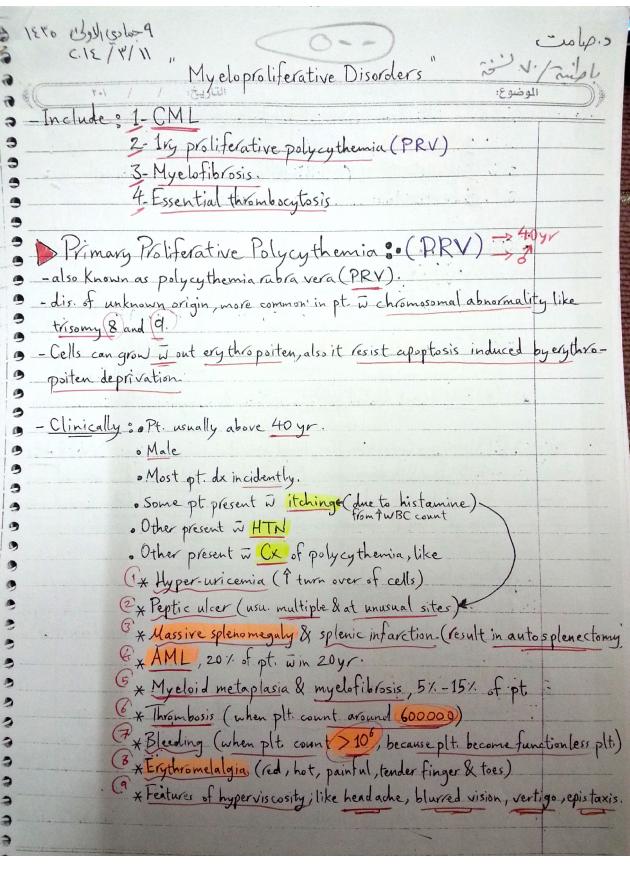 ٩ جمادي الاولى ١٤٣٥
٢٠١٤/٣/١١
د. صامت
باطنية / ٧٠ نسخة
" Myeloproliferative Disorders "
الموضوع: التاريخ: / / ٢٠١
- Include : 1- CML
2- 1ry proliferative polycythemia (PRV)
3- Myelofibrosis.
4- Essential thrombocytosis.
Primary Proliferative Polycythemia : (PRV) → 40 yr
→ ♂
- also known as polycythemia rubra vera (PRV).
- dis. of unknown origin, more common in pt. w̄ chromosomal abnormality like
trisomy 8 and 9.
- Cells can grow w̄ out erythropoiten, also it resist apoptosis induced by erythro-
poiten deprivation.
- Clinically : • Pt. usually above 40 yr.
• Male
• Most pt. dx incidently.
• Some pt present w̄ itching (due to histamine)
from ↑ WBC count
• Other present w̄ HTN
• Other present w̄ Cx of polycythemia, like
① * Hyper-uricemia (↑ turn over of cells)
② * Peptic ulcer (usu. multiple & at unusual sites)
③ * Massive splenomegaly & splenic infarction (result in autosplenectomy
④ * AML, 20% of pt. w̄ in 20 yr.
⑤ * Myeloid metaplasia & myelofibrosis, 5%-15% of pt
⑥ * Thrombosis (when plt count around 600000)
⑦ * Bleeding (when plt. count > 10⁶, because plt. become functionless plt.)
⑧ * Erythromelalgia (red, hot, painful, tender finger & toes)
⑨ * Features of hyperviscosity; like headache, blurred vision, vertigo, epistaxis.